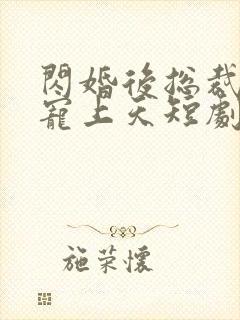 閃婚後總裁
寵上天短劇
施榮懷